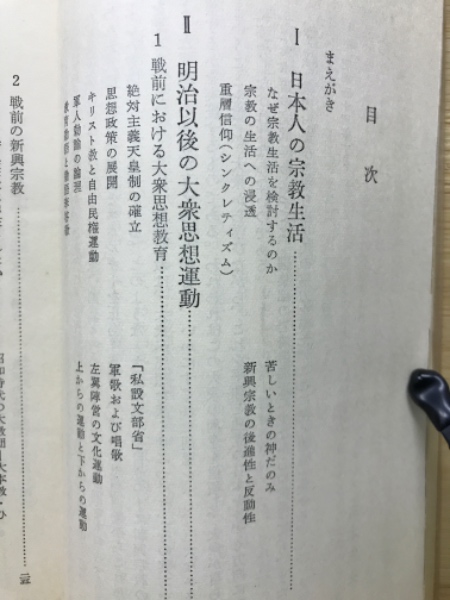 目次
まえがき
Ⅰ 日本人の宗教生活
なぜ宗教生活を検討するのか
苦しいときの神だのみ
宗教の生活への浸透
新興宗教の後進性と反動性
重層信仰(シンクレティズム)
Ⅱ 明治以後の大衆思想運動
1 戦前における大衆思想教育
絶対主義天皇制の確立
「私設文部省」
思想政策の展開
軍歌および唱歌
キリスト教と自由民権運動
左翼陣営の文化運動
軍人勅諭の論理
上からの運動と下からの運動
2 戦前の新興宗教